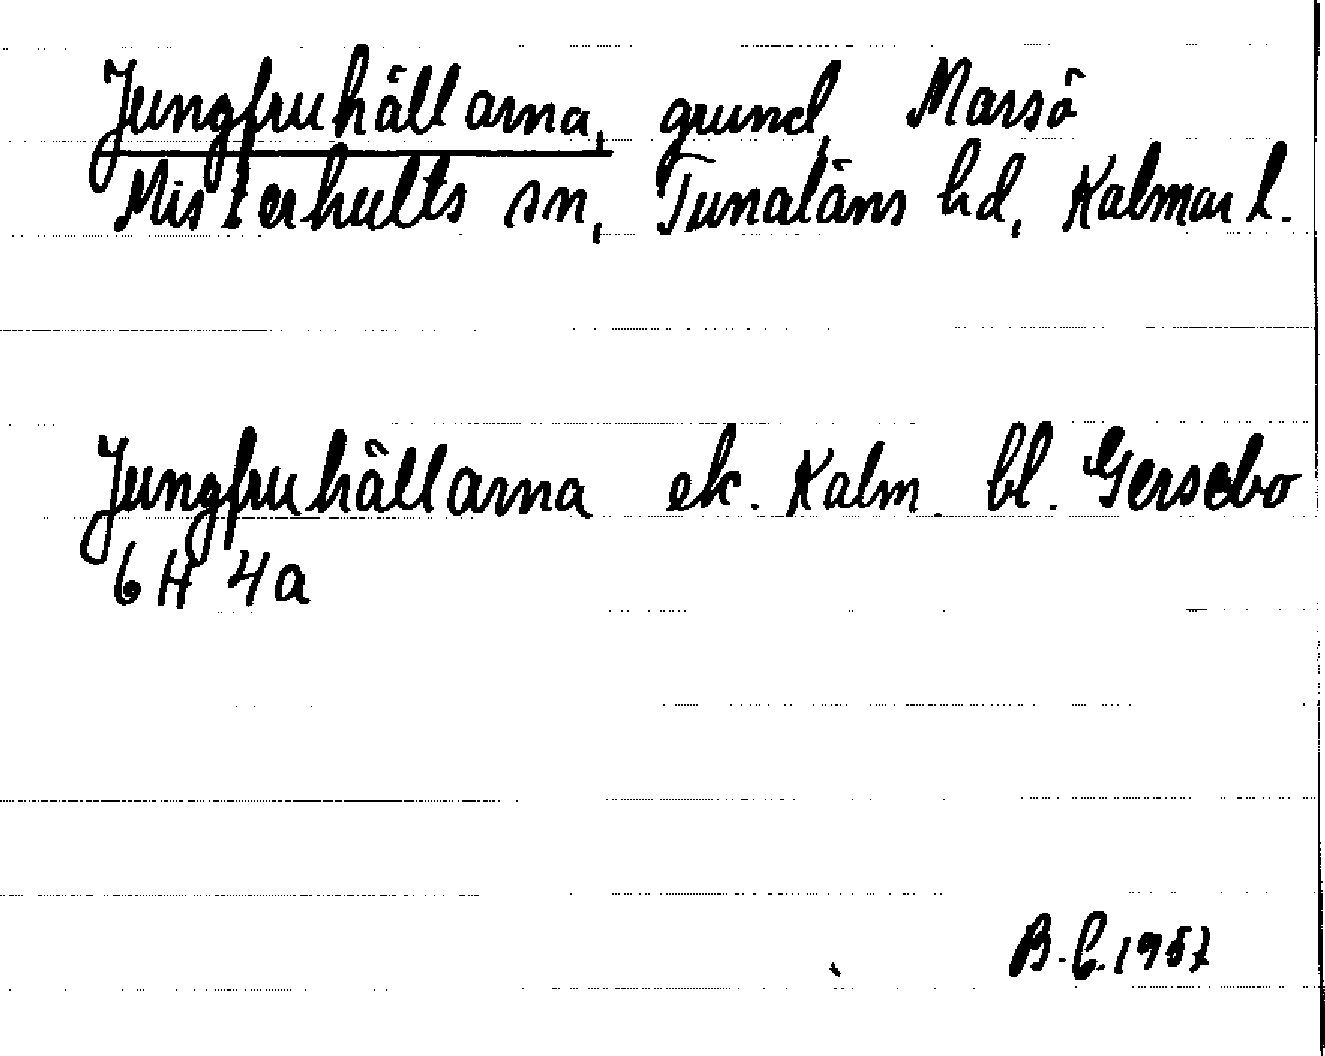 Jungfruhällarna, grund, Marsö
Misterhults sn, Tunaläns hd, Kalmar l.
Jungfruhällarna ek. Kalm. bl. Gersebo
6H 4a
B.C. 1957